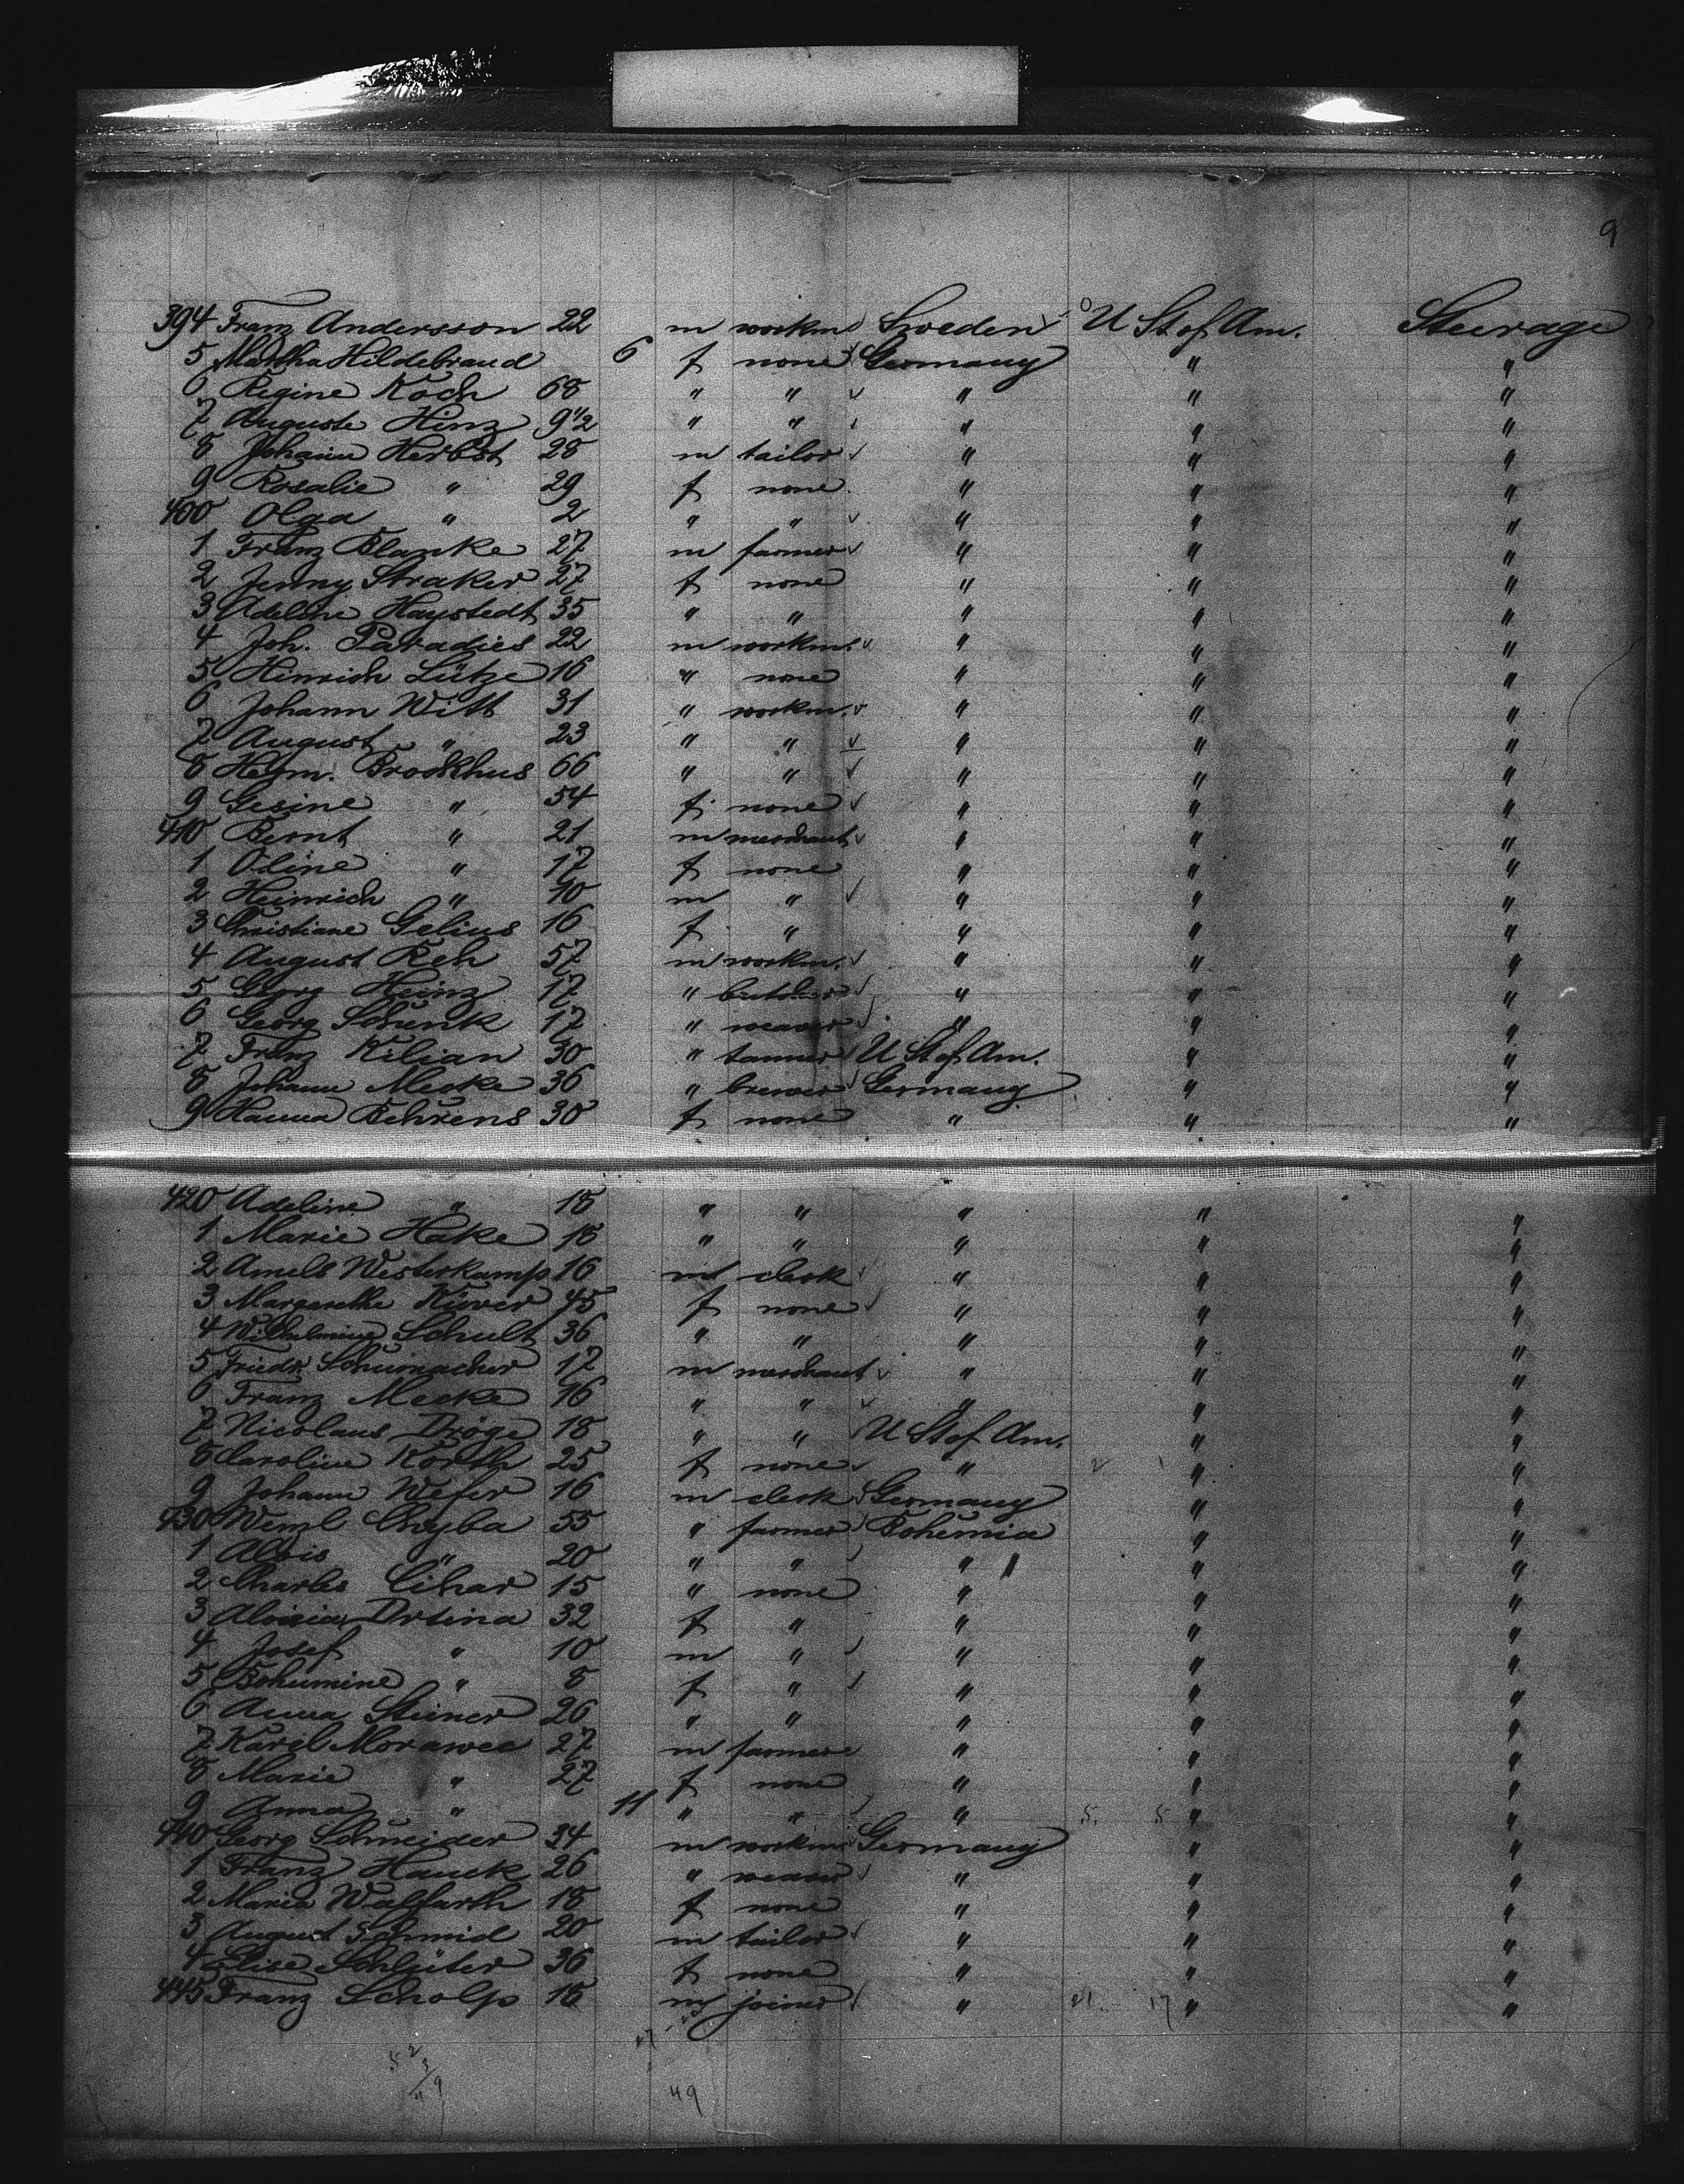 9
394 Franz Andersson 22 m workm Sweden U St of Am. Steerage
5 Martha Hildebrand 6 f none Germany " "
6 Regine Koch 68 " " " " "
7 Auguste Hinz 9 1/2 " " " " "
8 Johann Herbst 28 m tailor " " "
9 Rosalie " 29 f none " " "
400 Olga " 2 " " " " "
1 Franz Blanke 27 m farmer " " "
2 Jenny Straker 27 f none " " "
3 Adeline Haystedt 35 " " " " "
4 Joh. Paradies 22 m workm. " " "
5 Hinrich Lütze 16 " none " " "
6 Johann Witt 31 " workm. " " "
7 August " 23 " " " " "
8 Herm. Brookhus 66 " " " " "
9 Gesine " 54 f none " " "
410 Bernt " 21 m merchant " " "
1 Oline " 17 f none " " "
2 Heinrich " 10 m " " " "
3 Christiane Gelius 16 f " " " "
4 August Reh 57 m workm. " " "
5 Georg Heinz 17 " butcher " " "
6 Georg Schenk 17 " weaver " " "
7 Franz Kilian 30 " tanner U St of Am. " "
8 Johann Mecke 36 " brewer Germany " "
9 Hanna Behrens 30 f none " " "
420 Adeline " 18 " " " " "
1 Marie Hake 18 " " " " "
2 Amels Westerkamp 16 m clerk " " "
3 Margarethe Küver 45 f none " " "
4 Wilhelmine Schult 36 " " " " "
5 Friedr Schumacher 17 m merchant " " "
6 Franz Mecke 16 " " " " "
7 Nicolaus Dröge 18 " " U St of Am. " "
8 Caroline Korth 25 f none " " "
9 Johann Wefer 16 m clerk Germany " "
430 Wenzl Chyba 55 " farmer Bohemia " "
1 Alois " 20 " " " " "
2 Charles Cihar 15 " none " " "
3 Aloisia Drtina 32 f " " " "
4 Josef " 10 m " " " "
5 Bohumine " 8 f " " " "
6 Anna Steiner 26 " " " " "
7 Karel Morawec 27 m farmer " " "
8 Marie " 27 f none " " "
9 Anna " 11 " " " 5. 5 " "
440 Georg Schneider 34 m workm Germany " "
1 Franz Hauck 26 " weaver " " "
2 Maria Walfarth 18 f none " " "
3 August Schmid 20 m tailor " " "
4 Elise Schlüter 36 f none " " "
445 Franz Scholp 18 m joiner " 21. 17 " "
49